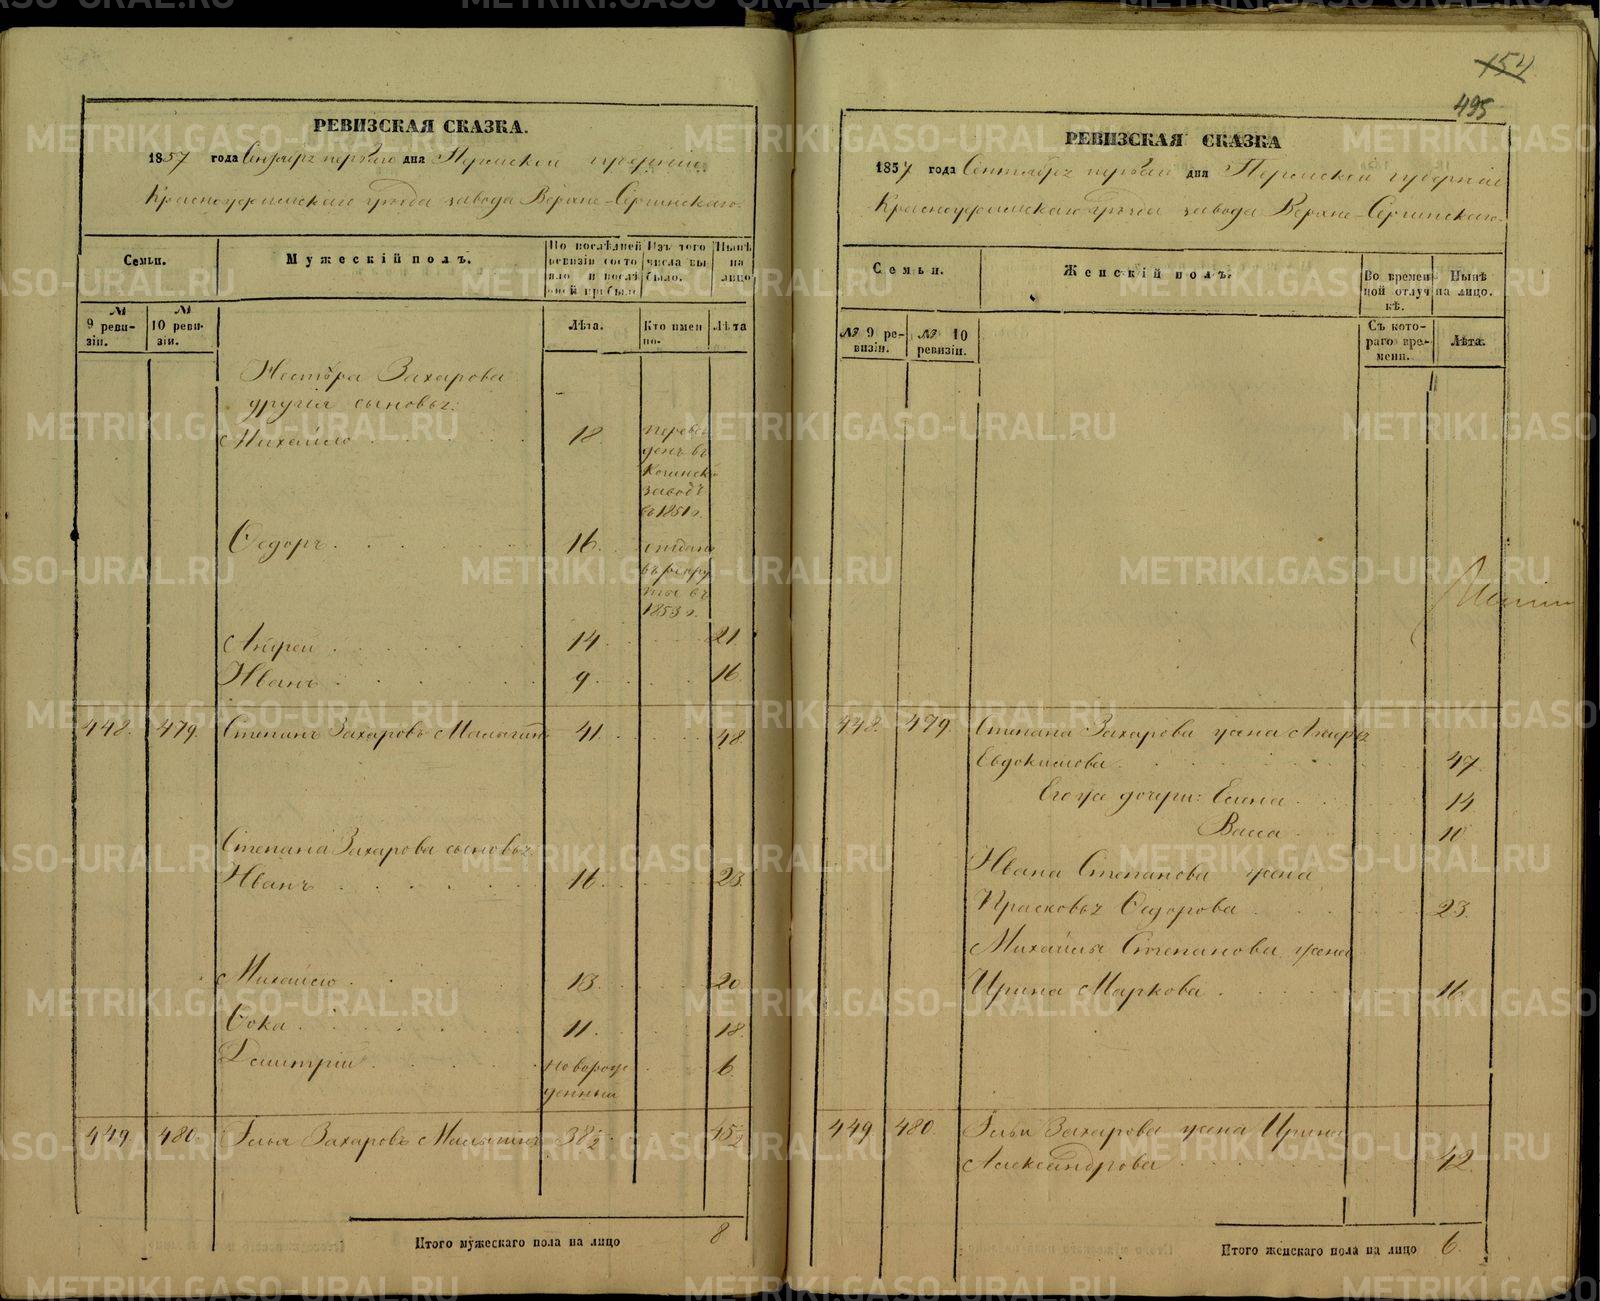 РЕВИЗСКАЯ СКАЗКА.
1857 года Сентября первого дня Пермской губернии
Красноуфимского уѣзда завода Верхне-Сергинскаго.
Семьи.
Мужескій полъ.
По послѣдней ревизіи состояло и послѣ оной прибыло
Изъ того числа выбыло.
Нынѣ на лицо
№ 9 ревизіи.
№ 10 ревизіи.
Лѣта.
Кто именно.
Лѣта
Нестера Захарова
другія сыновья:
Михайло 18 переведенъ въ
заводъ
въ 1851 г.
Ѳедоръ 16 отданъ
въ рекруты въ
1853 г.
Андрей 14 21
Иванъ 9 16
448. 479. Степанъ Захаровъ Малыгинъ 41 48
Степана Захарова сыновья:
Иванъ 16 23
Михайло 13 20
Ѳока 11 18
Дмитрій новорожденный 6
449 480 Илья Захаровъ Малыгинъ 38½ 45½
Итого мужескаго пола на лицо 8
154
495
РЕВИЗСКАЯ СКАЗКА
1857 года Сентября первого дня Пермской губерніи
Красноуфимскаго уѣзда завода Верхне-Сергинскаго.
Семьи.
Женскій полъ.
Во временной отлучкѣ.
Нынѣ на лицо.
№ 9 ревизіи.
№ 10 ревизіи.
Съ котораго времени.
Лѣта.
448. 479. Степана Захарова жена
Евдокимова 47
Его же дочери: Елена 14
Васса 10
Ивана Степанова жена
Прасковья Ѳедорова 23
Михайлы Степанова жена
Ирина Маркова 16
449. 480. Ильи Захарова жена Ирина
Александрова 42
Итого женскаго пола на лицо 6.
METRIKI.GASO-URAL.RU